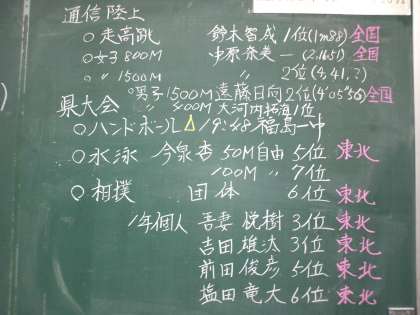 通信陸上
○走高跳 鈴木智成 1位(1m88)全国
○女子800M 中原奈美 一(2.16.51)全国
○〃 1500M 〃 2位(4,41.?)
○男子1500M 遠藤日向 2位(4'05"56)全国
県大会 〃 400M 大河内拓海 1位
○ハンドボール △ 19:48 福島一中
○水泳 今泉杏 50M自由 5位 東北
100M 〃 7位
○相撲 団体 6位 東北
1年個人 吾妻 悦樹 3位 東北
吉田雄汰 3位 東北
前田俊彦 5位 東北
塩田竜大 6位 東北